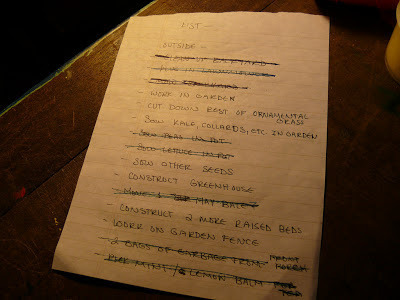 LIST -
OUTSIDE -
- CLEAN UP BACKYARD
- WORK IN GARDEN
- CUT DOWN REST OF ORNAMENTAL GRASS
- SOW KALE, COLLARDS, ETC IN GARDEN
- SOW PEAS IN POT
- SOW LETTUCE IN POT
- SOW OTHER SEEDS
- CONSTRUCT GREENHOUSE
- HAY BALE
- CONSTRUCT 2 MORE RAISED BEDS
- WORK ON GARDEN FENCE
- 2 BAGS OF GARBAGE FROM FRONT PORCH
- PICK MINT / LEMON BALM FOR TEA